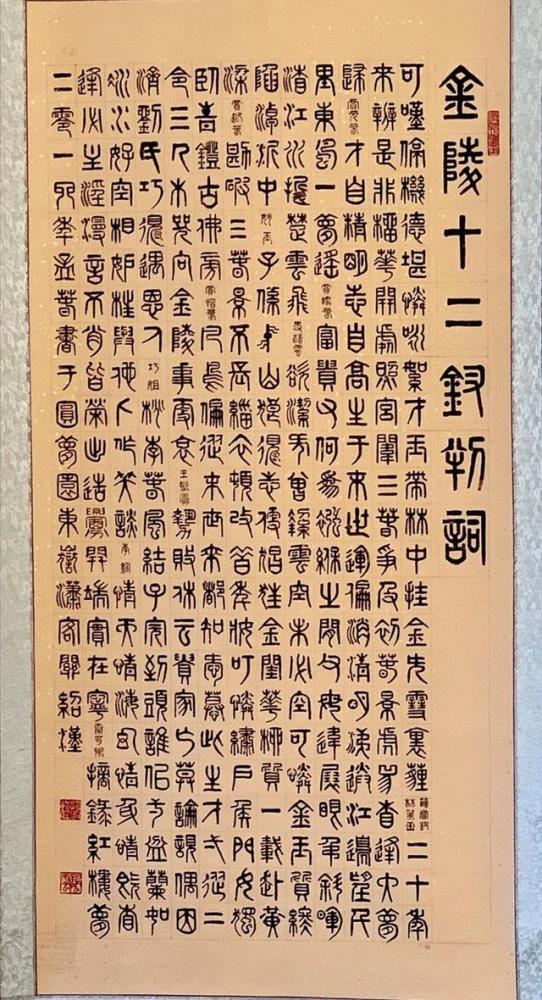 金陵十二釵判詞
可嘆停機德堪憐詠絮才玉帶林中挂金簪雪裏薶薛寶釵林黛玉二十年
來辨是非榴花開處照宮闈三春爭及初春景虎兕相逢大夢
歸賈元春才自精明志自高生于末世運偏消清明涕送江邊望千
里東風一夢遙賈探春富貴又何為襁緥之間父母違展眼弔斜暉
湘江水逝楚雲飛史湘雲欲潔何曾潔雲空未必空可憐金玉質終
陷淖泥中妙玉子係中山狼得志便猖狂金閨花柳質一載赴黃
粱賈迎春勘破三春景不長緇衣頓改昔年妝可憐繡戶侯門女獨
臥青鐙古佛旁賈惜春凡鳥偏從末世來都知愛慕此生才一從二
令三人木哭向金陵事更哀王熙鳳勢敗休云貴家亡莫論親偶因
濟劉氏巧得遇恩人巧姐桃李春風結子完到頭誰似一盆蘭如
冰水好空相妒枉與他人作笑談李紈情天情海幻情身情既相
逢必主淫漫言不肖皆榮出造釁開端實在寧秦可卿摘錄紅樓夢
二零一九年孟春書于圓夢園東嶽瀟客關紹